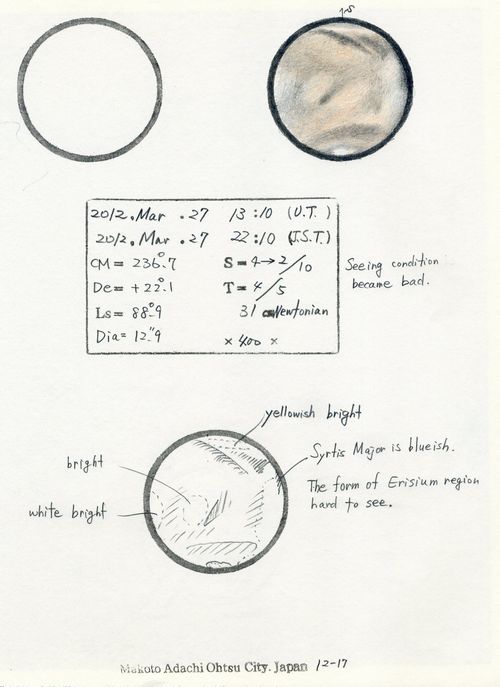 2012. Mar. 27 13:10 (U.T.)
2012. Mar. 27 22:10 (J.S.T.)
CM= 236°.7 S=4→2/10
De= +22°.1 T=4/5
Ls= 88°.9 31 cm Newtonian
Dia= 12".9 × 400 ×
Seeing condition
became bad.
yellowish bright
bright
Syrtis Major is blueish.
white bright
The form of Erisium region
hard to see.
Makoto Adachi Ohtsu City. Japan 12-17